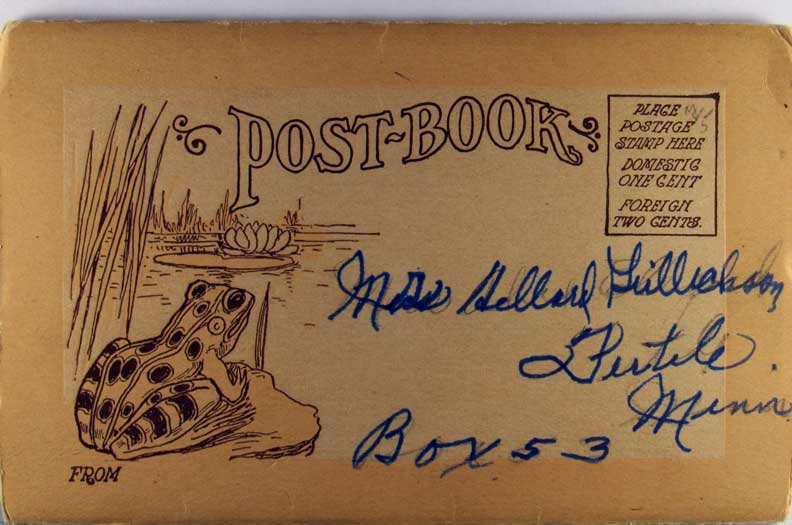 POST-BOOK
PLACE
POSTAGE
STAMP HERE
DOMESTIC
ONE CENT
FOREIGN
TWO CENTS.
Hillard Gullickson
Fertile
Minn
Box 53
FROM